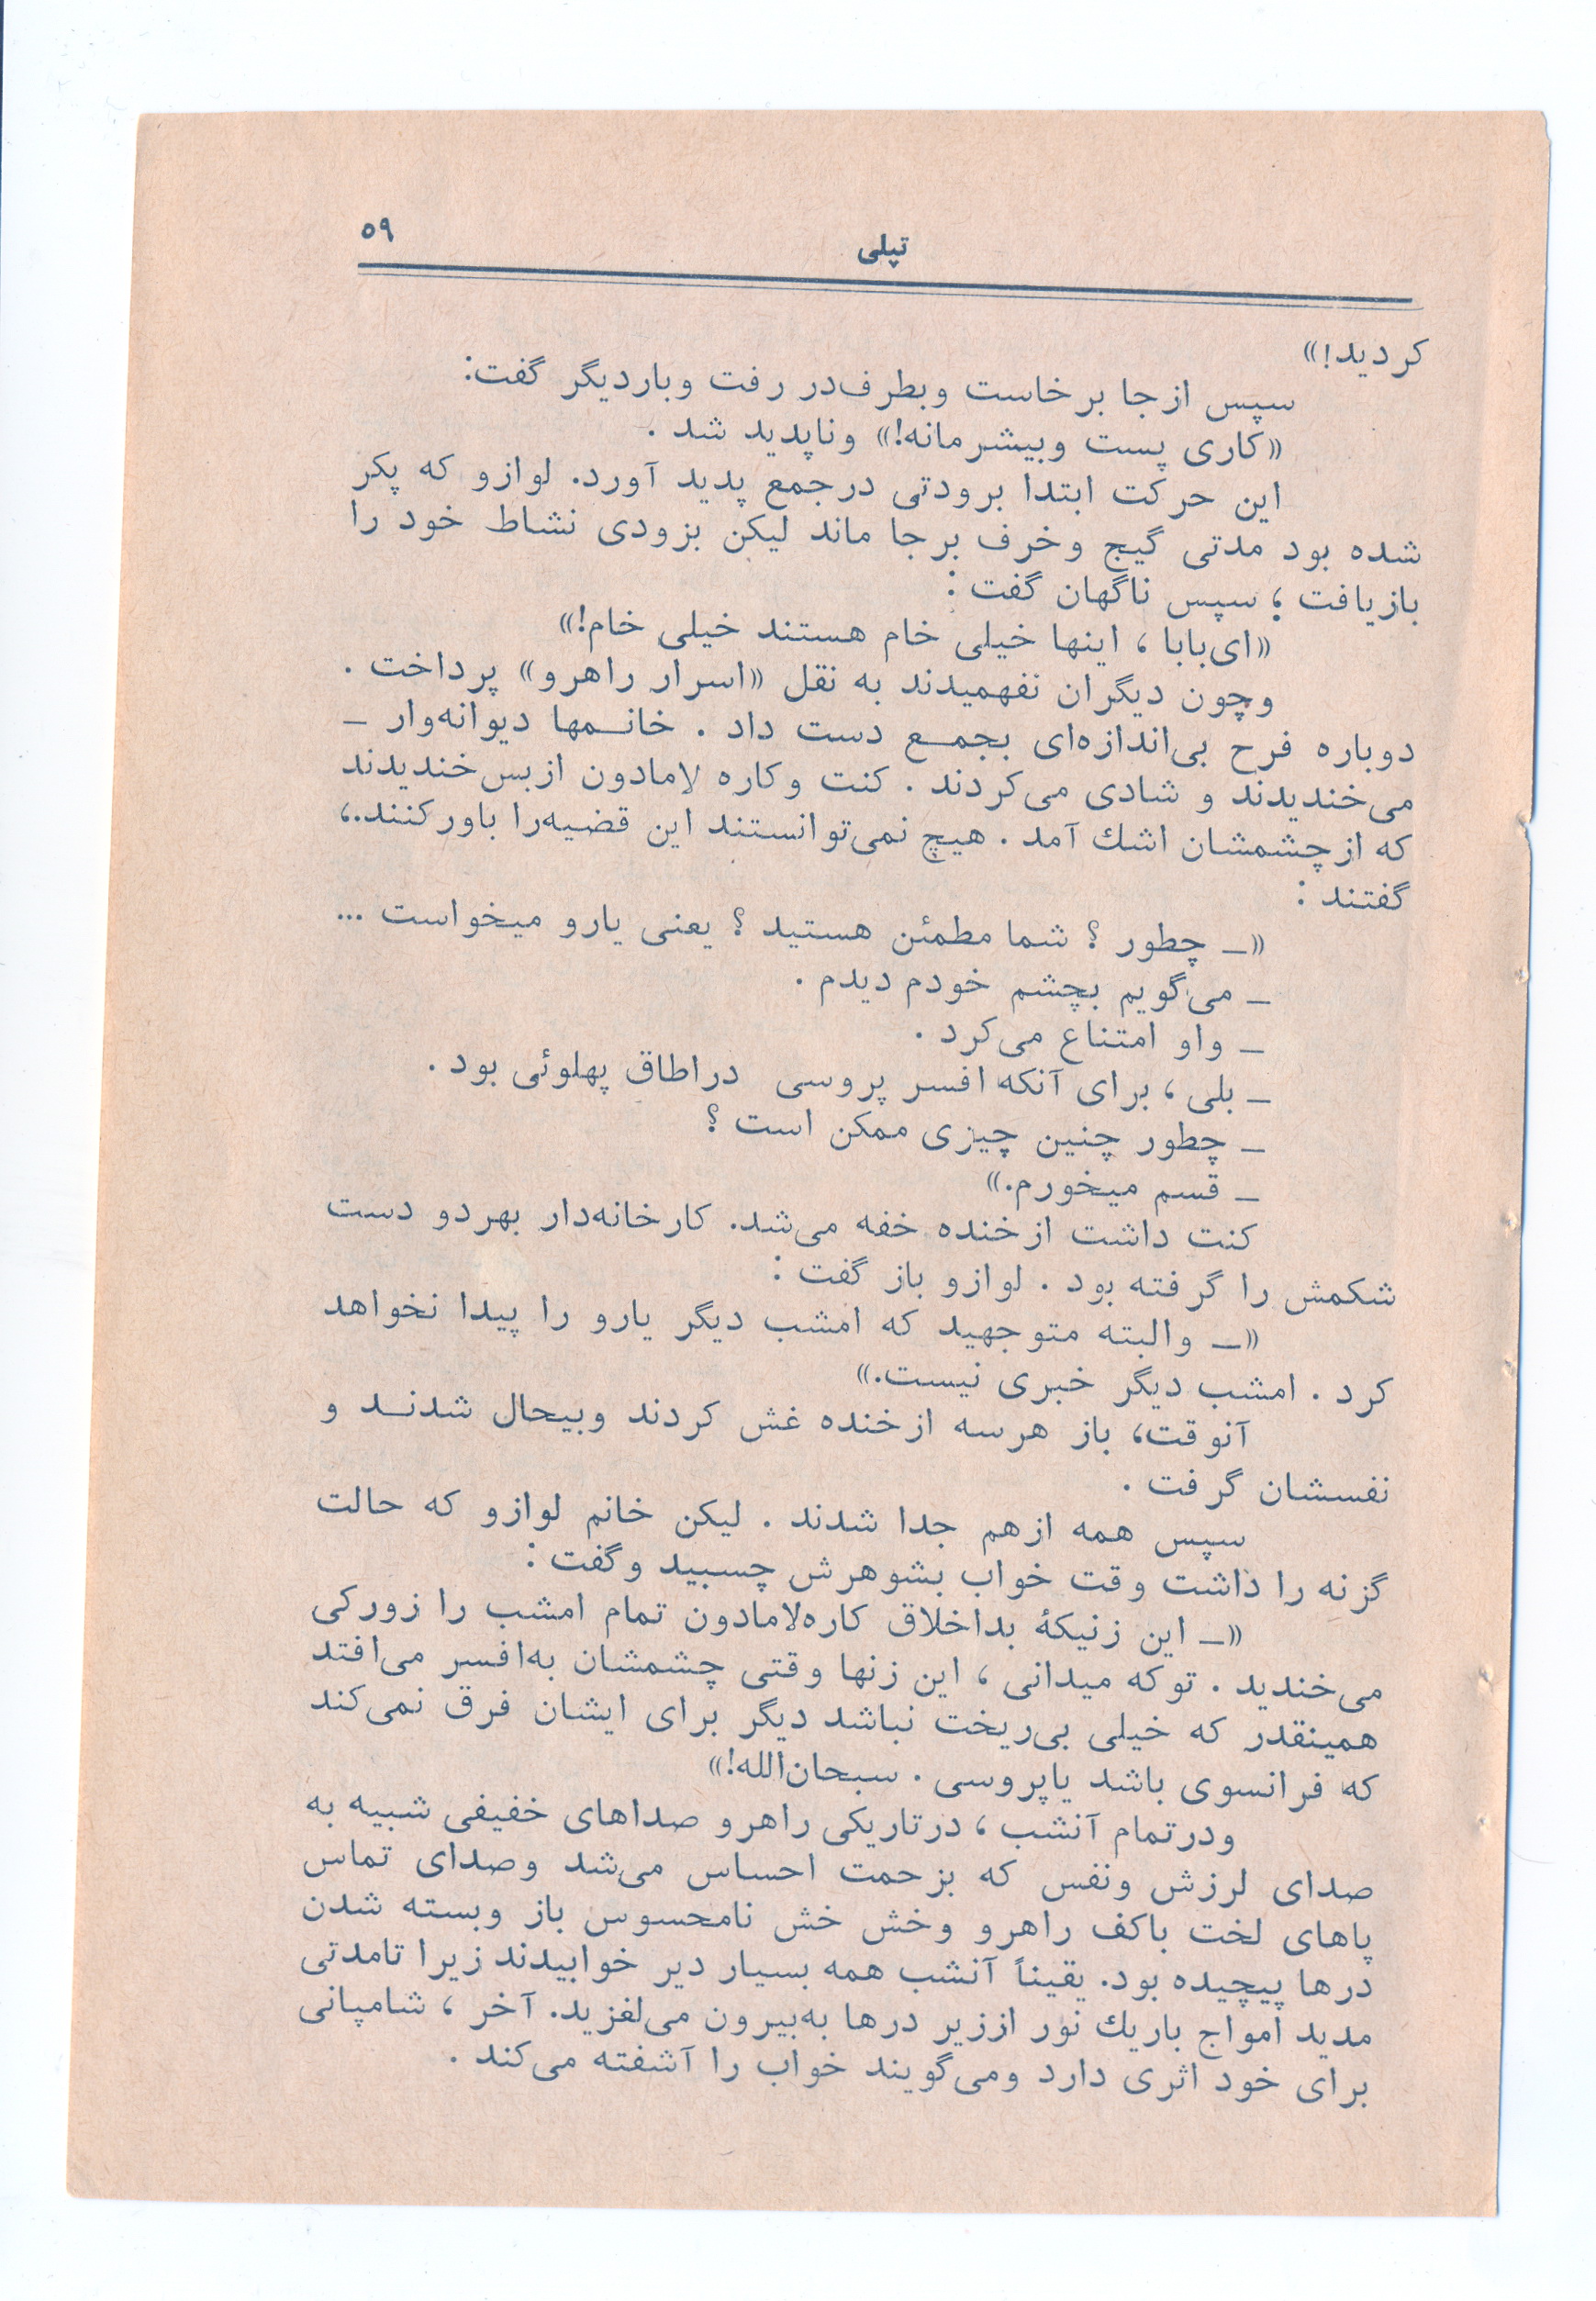 تپلی
۵۹
کردید!»
سپس ازجا برخاست وبطرف‌در رفت وباردیگر گفت:
«کاری پست وبیشرمانه!» وناپدید شد .
این حرکت ابتدا برودتی درجمع پدید آورد. لوازو که پکر
شده بود مدتی گیج وخرف برجا ماند لیکن بزودی نشاط خود را
بازیافت ؛ سپس ناگهان گفت :
«ای‌بابا ، اینها خیلی خام هستند خیلی خام!»
وچون دیگران نفهمیدند به نقل «اسرار راهرو» پرداخت .
دوباره فرح بی‌اندازه‌ای بجمـع دست داد . خانـمها دیوانه‌وار ـ
می‌خندیدند و شادی می‌کردند . کنت وکاره لامادون ازبس‌خندیدند
که ازچشمشان اشك آمد . هیچ نمی‌توانستند این قضیه‌را باورکنند.،
گفتند :
«ـ چطور ؟ شما مطمئن هستید ؟ یعنی یارو میخواست ...
ـ می‌گویم بچشم خودم دیدم .
ـ واو امتناع می‌کرد .
ـ بلی ، برای آنکه افسر پروسی دراطاق پهلوئی بود .
ـ چطور چنین چیزی ممکن است ؟
ـ قسم میخورم.»
کنت داشت ازخنده خفه می‌شد. کارخانه‌دار بهردو دست
شکمش را گرفته بود . لوازو باز گفت :
«ـ والبته متوجهید که امشب دیگر یارو را پیدا نخواهد
کرد . امشب دیگر خبری نیست.»
آنوقت، باز هرسه ازخنده غش کردند وبیحال شدنـد و
نفسشان گرفت .
سپس همه ازهم جدا شدند . لیکن خانم لوازو که حالت
گزنه را داشت وقت خواب بشوهرش چسبید وگفت :
«ـ این زنیکۀ بداخلاق کاره‌لامادون تمام امشب را زورکی
می‌خندید . توکه میدانی ، این زنها وقتی چشمشان به‌افسر می‌افتد
همینقدر که خیلی بی‌ریخت نباشد دیگر برای ایشان فرق نمی‌کند
که فرانسوی باشد یاپروسی . سبحان‌الله!»
ودرتمام آنشب ، درتاریکی راهرو صداهای خفیفی شبیه به
صدای لرزش ونفس که بزحمت احساس می‌شد وصدای تماس
پاهای لخت باکف راهرو وخش خش نامحسوس باز وبسته شدن
درها پیچیده بود. یقیناً آنشب همه بسیار دیر خوابیدند زیرا تامدتی
مدید امواج باریك نور اززیر درها به‌بیرون می‌لغزید. آخر ، شامپانی
برای خود اثری دارد ومی‌گویند خواب را آشفته می‌کند .